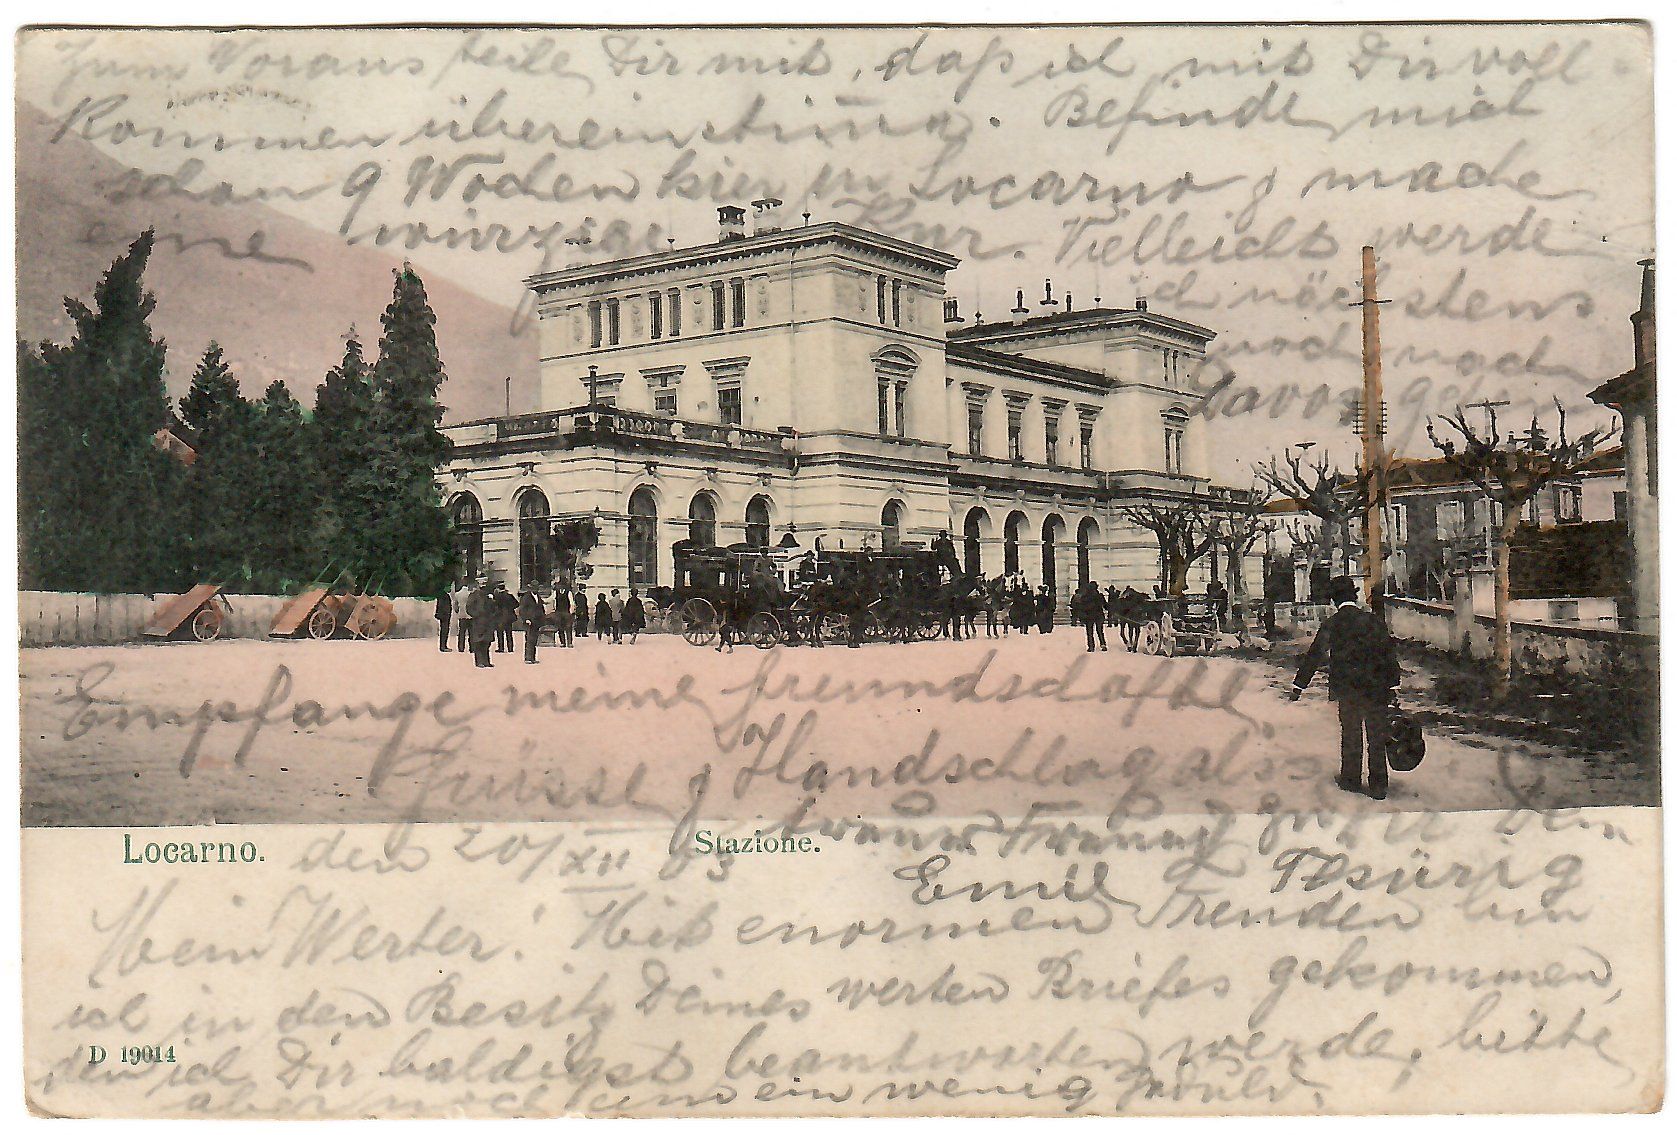 Zum Voraus teile Dir mit, daß ich mit Dir voll-
kommen übereinstimme. Befinde mich
schon 9 Wochen hier in Locarno & mache
eine winzige Kur. Vielleicht werde
ich nächstens
noch nach
Davos gehen
Empfange meine freundschaftl.
Grüsse & Handschlag als
Dein
Locarno. den 20/XII 03 Stazione.
Emil
Mein Werter! Mit enormen Freuden bin
ich in den Besitz Deines werten Briefes gekommen,
den ich Dir baldigst beantworten werde, bitte
aber noch um ein wenig Geduld.
D 19014